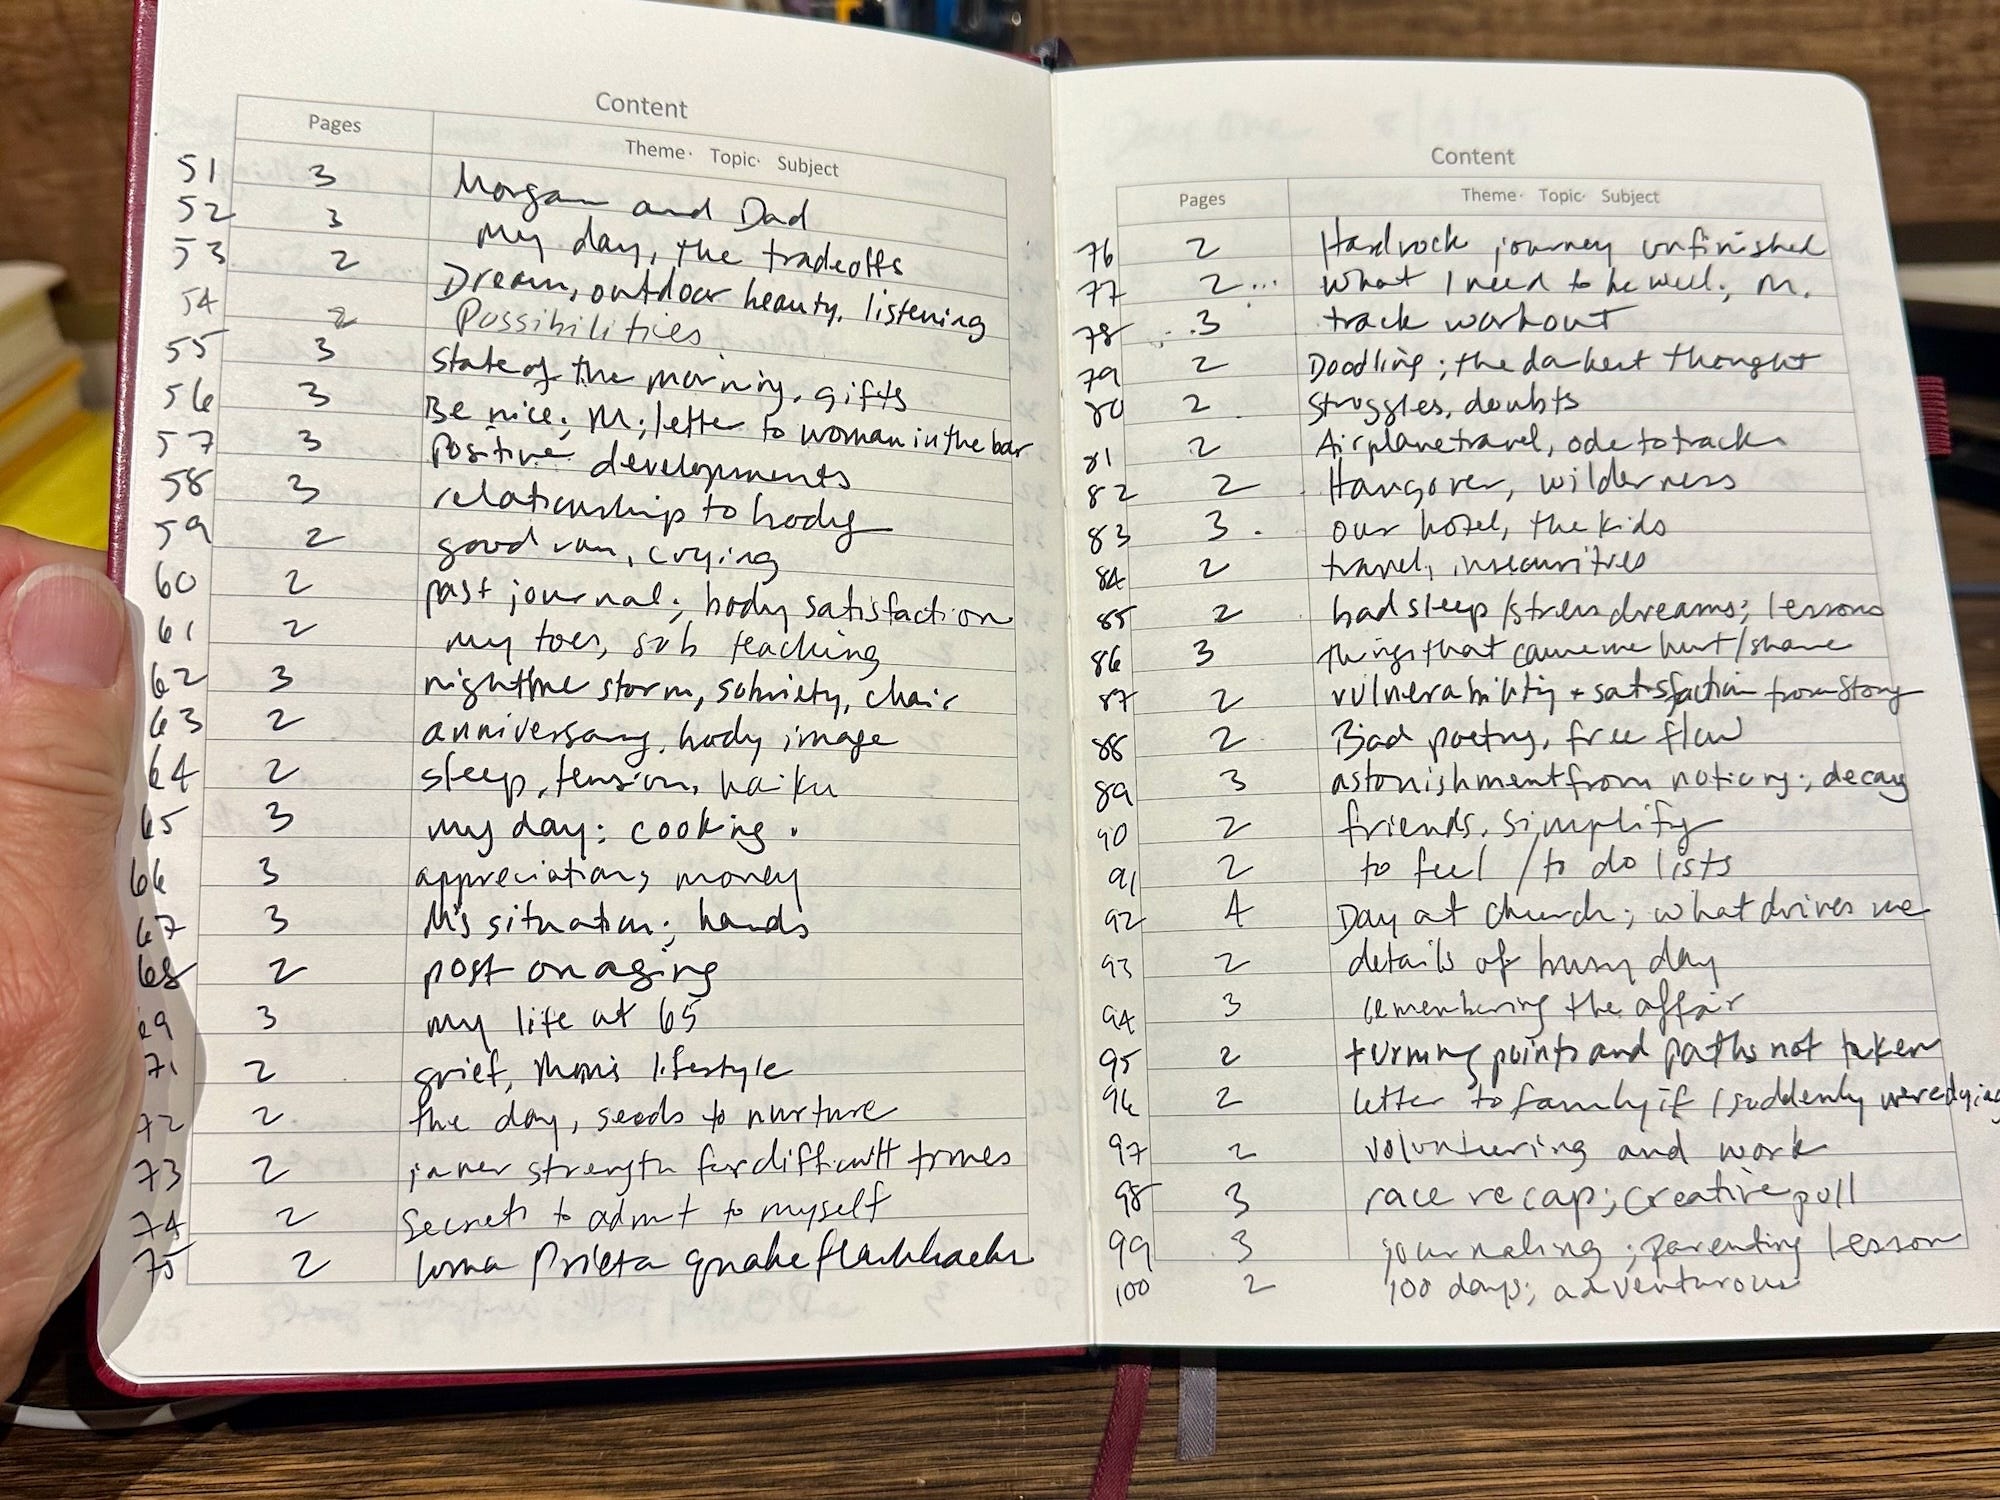 Content
Pages Theme· Topic· Subject
51 3 Morgan and Dad
52 3 My day, the tradeoffs
53 2 Dream, outdoor beauty, listening
54 2 Possibilities
55 3 State of the morning, gifts
56 3 Be nice; M; letter to woman in the bar
57 3 Positive developments
58 3 relationship to body
59 2 good run, crying
60 2 past journal; body satisfaction
61 2 my toes, sub teaching
62 3 nighttime storm, sobriety, chair
63 2 anniversary, body image
64 2 sleep, tension, haiku
65 3 my day; cooking.
66 3 appreciation, money
67 3 M's situation; hands
68 2 post on aging
69 3 my life at 65
71 2 grief, Mom's lifestyle
72 2 the day, seeds to nurture
73 2 inner strength for difficult times
74 2 Secrets to admit to myself
75 2 Loma Prieta quake flashbacks
Content
Pages Theme· Topic· Subject
76 2 Hardrock journey unfinished
77 2... What I need to be well; M.
78 3 track workout
79 2 Doodling; the darkest thought
80 2 Struggles, doubts
81 2 Airplane travel, ode to track
82 2 Hangover, wilderness
83 3 our hotel, the kids
84 2 travel, insecurities
85 2 bad sleep/stress dreams; lessons
86 3 things that cause me hurt/shame
87 2 vulnerability + satisfaction from story
88 2 Bad poetry, free flow
89 3 astonishment from noticing; decay
90 2 friends, simplify
91 2 to feel / to do lists
92 4 Day at church; what drives me
93 2 details of busy day
94 3 remembering the affair
95 2 turning points and paths not taken
96 2 letter to family if I suddenly were dying
97 2 volunteering and work
98 3 race recap; creative pull
99 3 journaling; parenting lesson
100 2 100 days; adventurous